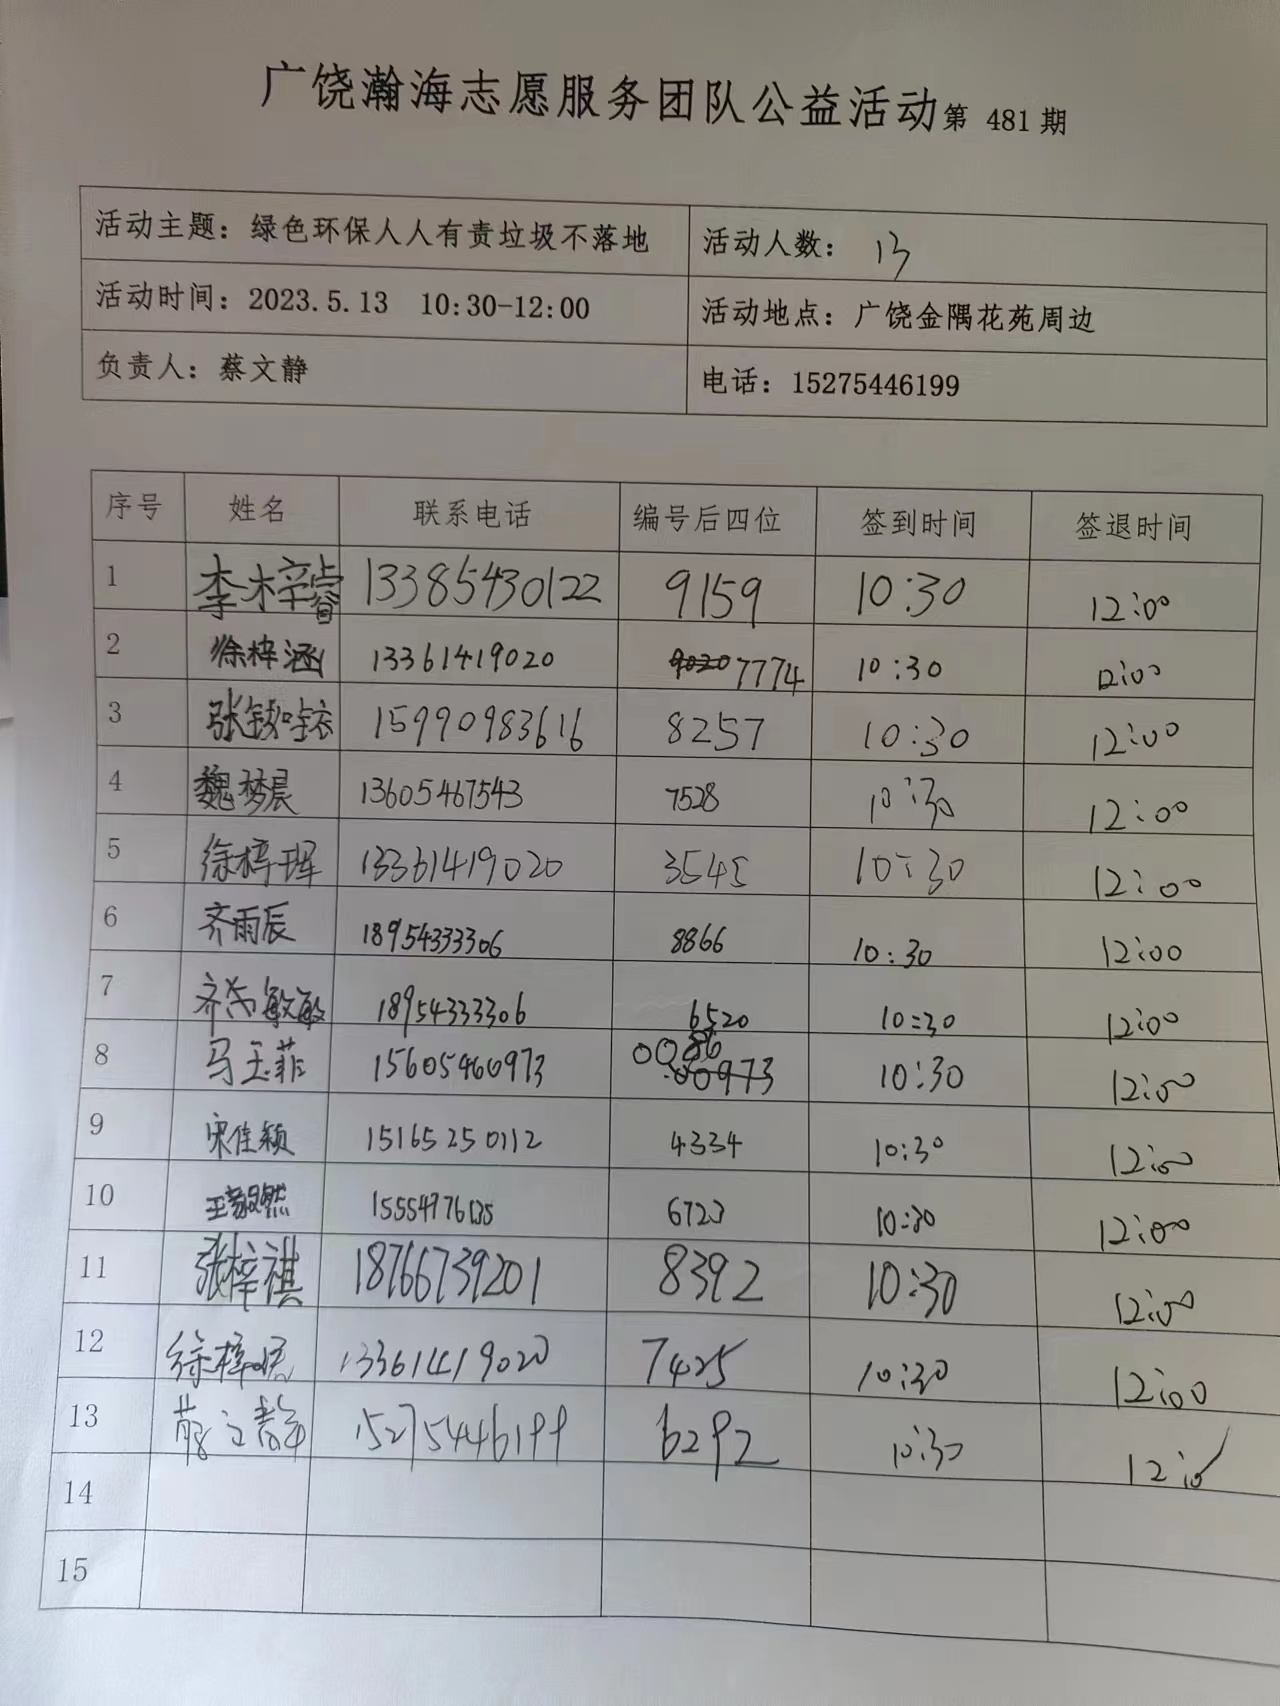 广饶瀚海志愿服务团队公益活动第 481 期
活动主题：绿色环保人人有责垃圾不落地 活动人数： 13
活动时间：2023.5.13 10:30-12:00 活动地点：广饶金隅花苑周边
负责人：蔡文静 电话：15275446199
序号 姓名 联系电话 编号后四位 签到时间 签退时间
1 李木梓睿 13385430122 9159 10:30 12:00
2 徐梓涵 13361419020 7774 10:30 12:00
3 张 15990983616 8257 10:30 12:00
4 魏梦晨 13605467543 7528 10:30 12:00
5 徐梓珲 13361419020 3545 10:30 12:00
6 齐雨辰 18954333306 8866 10:30 12:00
7 齐尚敏敏 18954333306 6520 10:30 12:00
8 马玉菲 15605460973 0086 10:30 12:00
9 宋佳颖 15165250112 4334 10:30 12:00
10 王毅然 15554976135 6723 10:30 12:00
11 张梓祺 18766739201 8392 10:30 12:00
12 徐梓 13361419020 7425 10:30 12:00
13 蔡文静 15275446199 6292 10:30 12:00
14
15